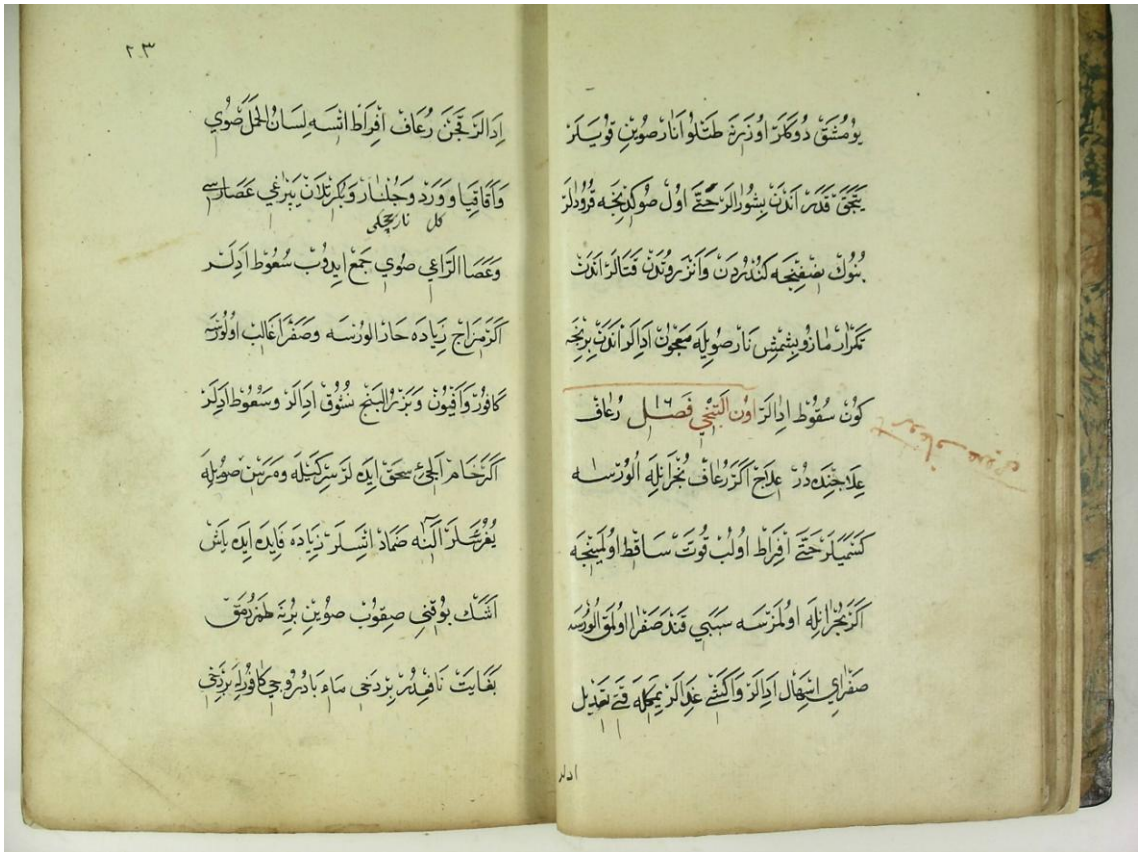 يومشق دوكلر اوزره طتلو انار صوين قويلر
يتجق قدر اندن بشورالر حتى اول صوكدنجه قرودلر
بونوك نصفنجه كندردن وانزروتدن قتالر اندن
تكرار مازو بشمش نار صويله معجون ادالر اندن برنجه
كون سقوط ادالر اون التنجى فصل ١٦ رعاف
علاجنده در علاج اكر رعاف بحرانله الورسه
كسميلر حتى افراط اولب قوت ساقط اولمينجه
اكر بحرانله اولمزسه سببي قنده صفرا اولمق الورسه
صفراي اسهال ادالر واكشى غدالر يمكله قنى تعديل
ادلر
٢٣
ادالر قچن رعاف افراط اتسه لسان الحمل صوي
واقاقيا وورد وجلنار وبكرتلان يپرغي عصارسي
كل نار چچكى
وعصا الراعي صوي جمع ايدوب سعوط ادلر
اكر مزاج زياده حار الورسه وصفرا غالب اولورسه
كافور وافيون وبزر البنج سنوق ادالر وسعوط ادلر
اكر خام الجئ سحق ايدلر سركيله ومرسين صويله
يغرسلر آلنه ضماد اتسلر زياده فايده ايده باش
اشك بوقنى صقوب صوين برنه طمزرمق
بغايت نافعدر بردخى ماء بادروجى كافورله بردخى